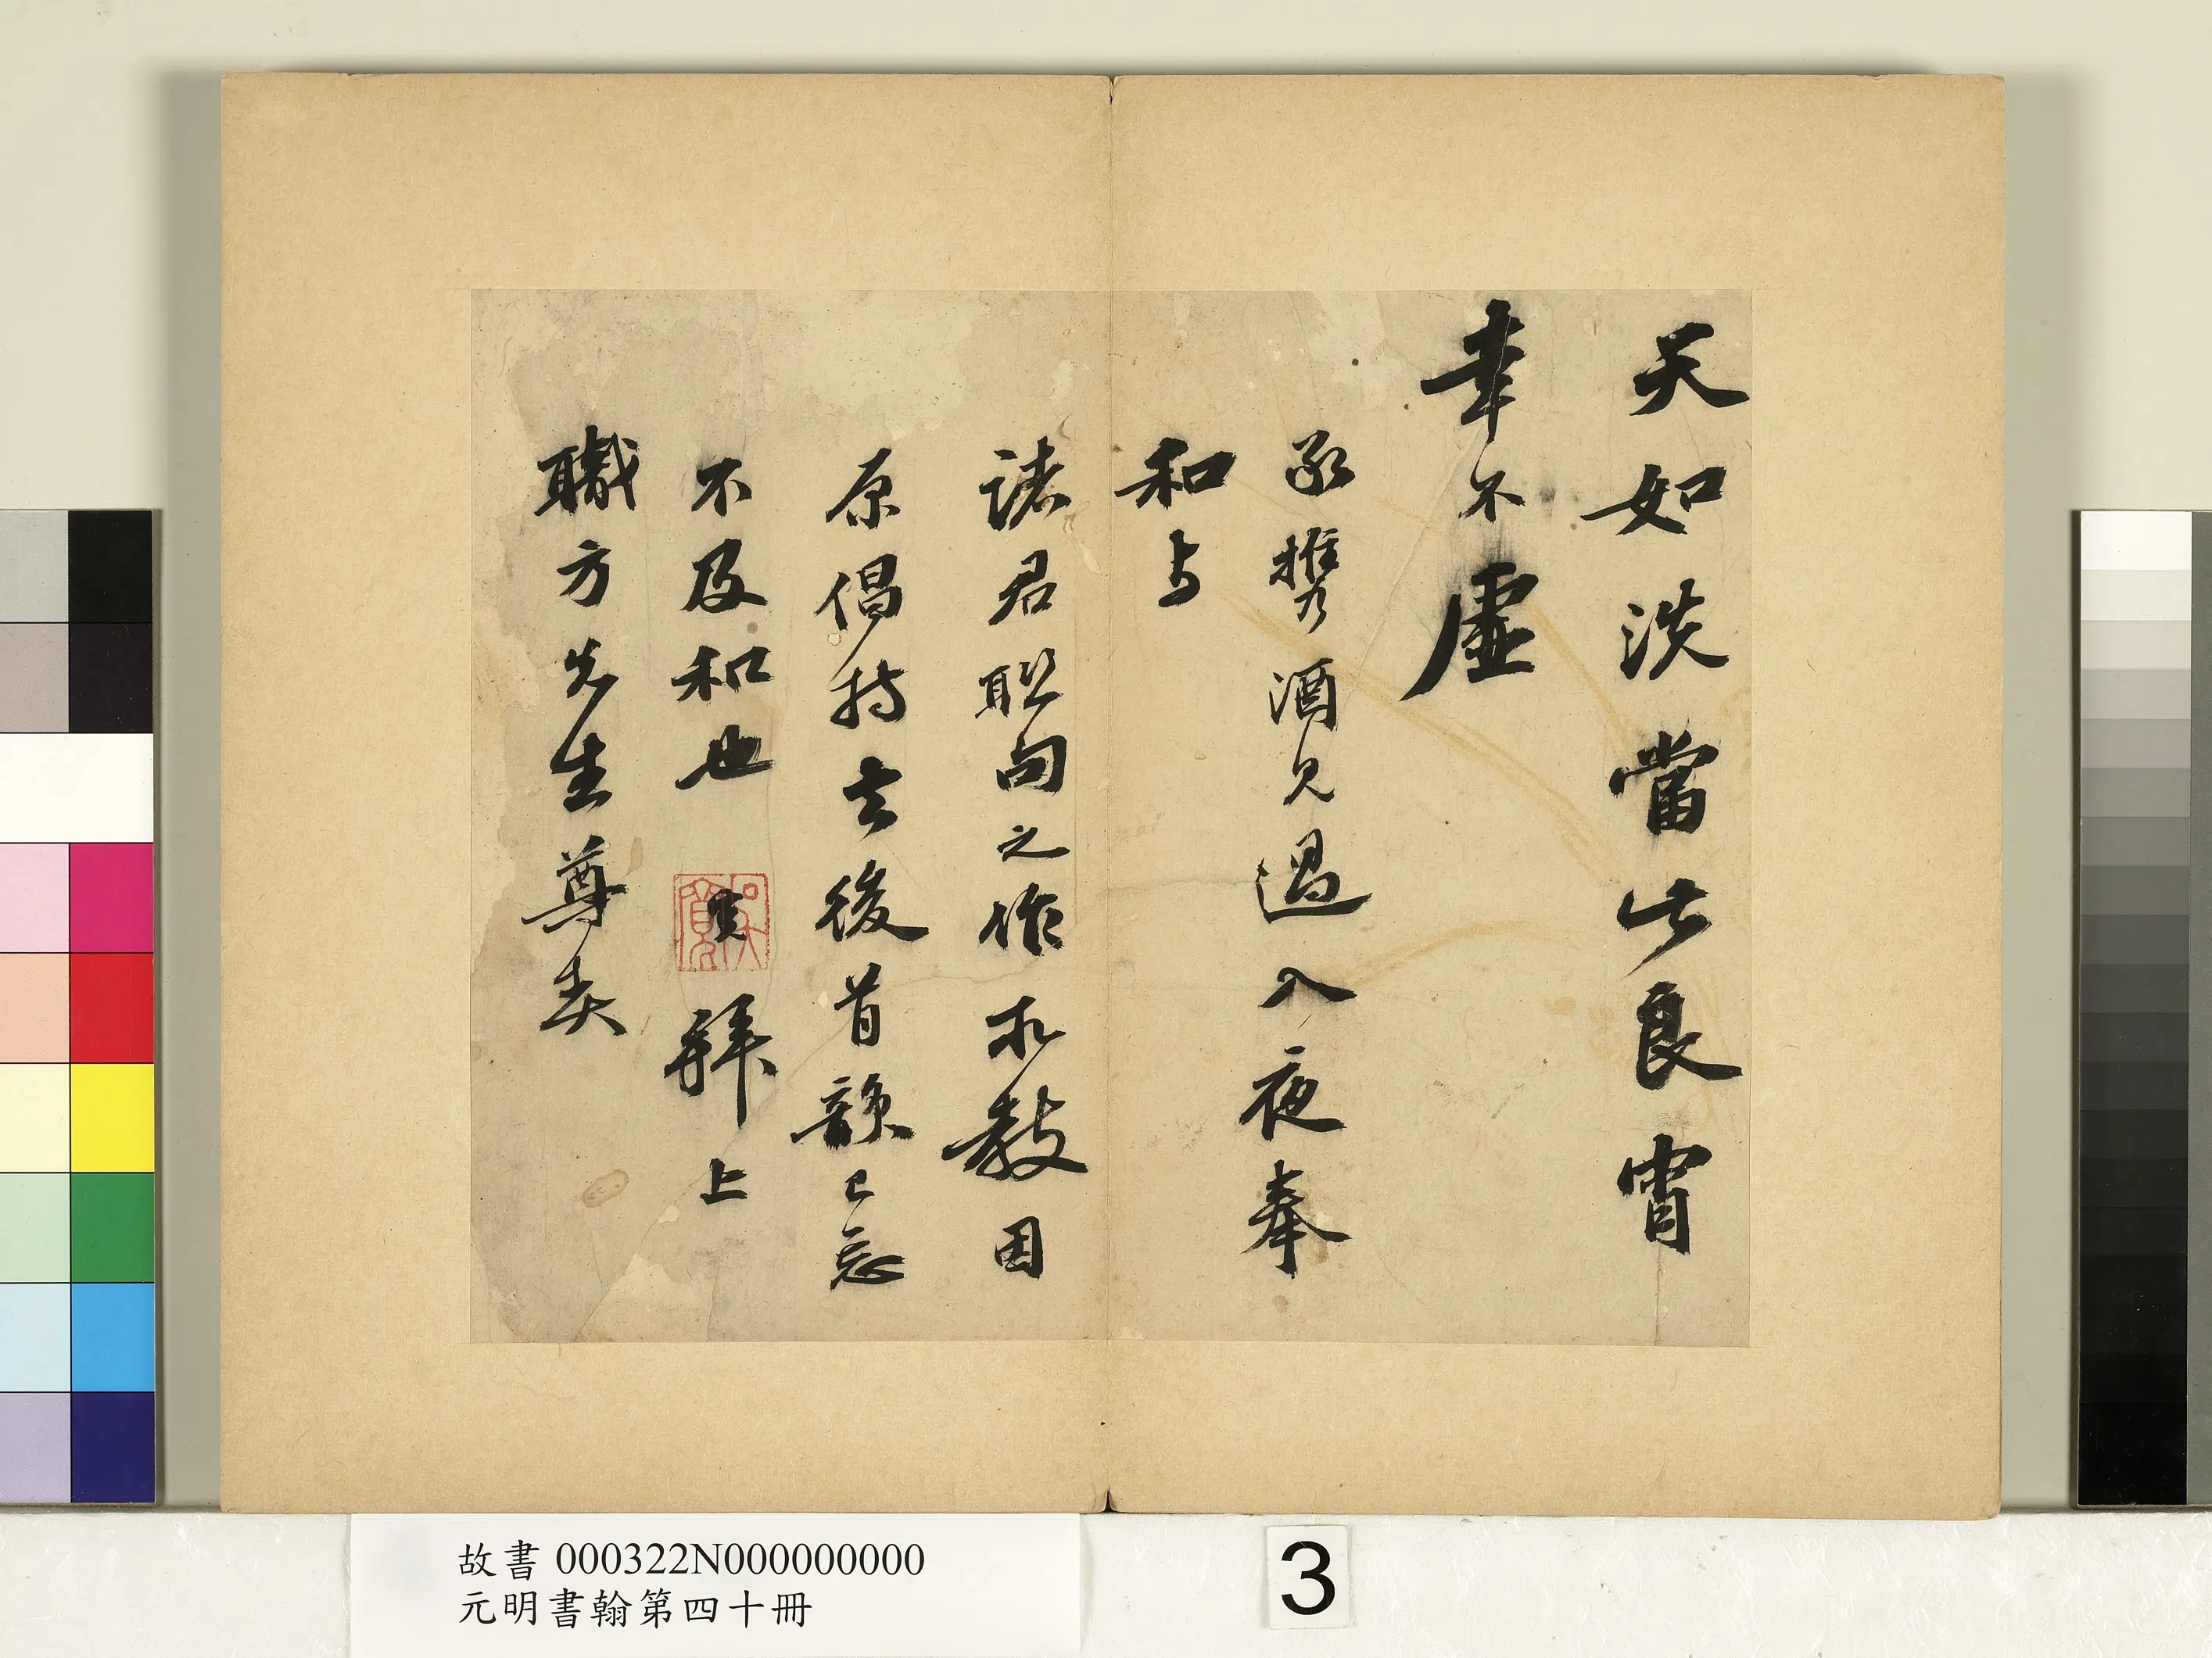 天如淡當此良宵
幸不虛
承攜酒見過入夜奉
和与
諸君聯句之作求教因
原倡持去後首韻已忘
不及和也 寬 拜上
職方先生尊契
吳寬
故書 000322N000000000
元明書翰第四十冊
3